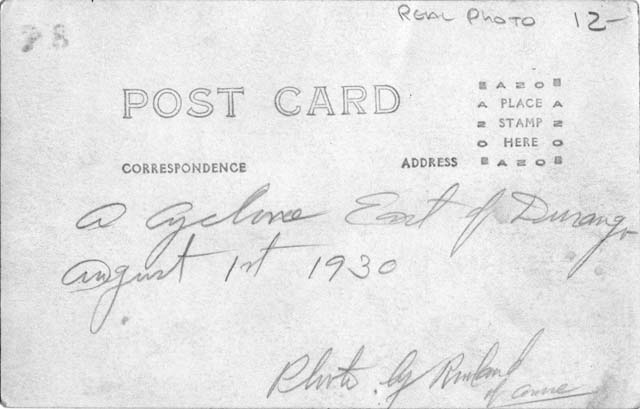 REAL PHOTO 12-
POST CARD
AZO
PLACE
STAMP
HERE
AZO
CORRESPONDENCE
ADDRESS
a cyclone East of Durango
august 1st 1930
Photo. By
of course